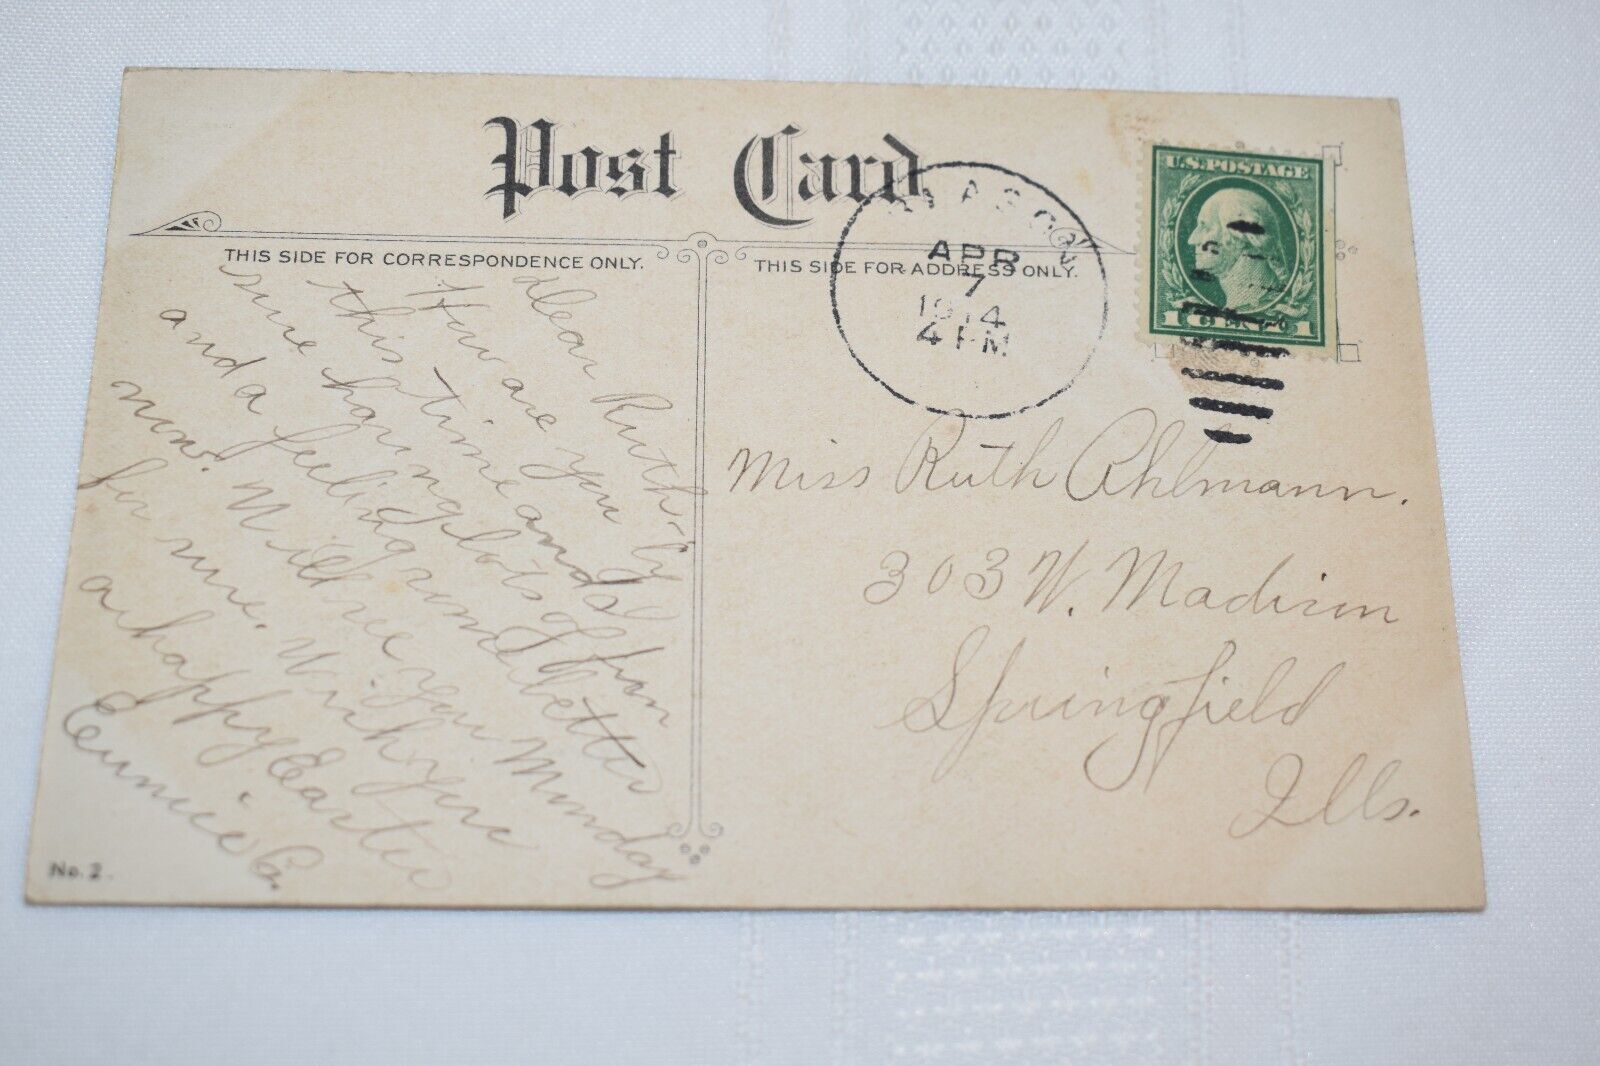 Post Card
THIS SIDE FOR CORRESPONDENCE ONLY.
THIS SIDE FOR ADDRESS ONLY.
APR
7
1914
4 PM
U.S. POSTAGE
1 CENT 1
Dear Ruth:-
How are you by
this time and I
am having lots of fun
and a feeling some better
now. Will see you Monday
for sure. Wish you
a happy Easter
Eunice C.
Miss Ruth Ahlmann.
303 W. Madison
Springfield
Ills.
No. 2.